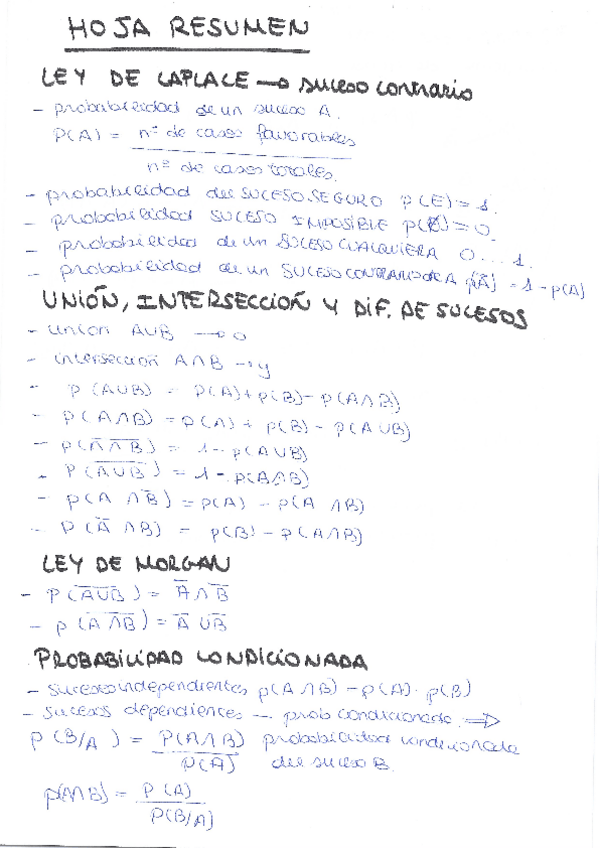 HOJA RESUMEN
LEY DE LAPLACE → suceso contrario
- probabilidad de un suceso A.
P(A) = nº de casos favorables
nº de casos totales.
- probabilidad del SUCESO SEGURO P(E) = 1.
- probabilidad SUCESO IMPOSIBLE p(Ø) = 0
- probabilidad de un SUCESO CUALQUIERA 0...1.
- probabilidad de un SUCESO CONTRARIO de A p(Ā) = 1 - p(A)
UNIÓN, INTERSECCIOÑ Y DIF. DE SUCESOS
- union AUB → o
- intersección A∩B → y
- p (AUB) = p(A) + p(B) - p(A∩B)
- p(A∩B) = p(A) + p(B) - p(AUB)
- p(A̅∩̅B̅) = 1 - p(AUB)
- P(A̅U̅B̅) = 1 - p(A∩B)
- p(A ∩B̅) = p(A) - p(A ∩B)
- p(A̅ ∩B) = p(B) - p(A∩B)
LEY DE MORGAN
- P(A̅U̅B̅) = A̅∩B̅
- p(A̅∩̅B̅) = A̅UB̅
PROBABILIDAD CONDICIONADA
- sucesos independientes p(A∩B) - p(A) · p(B)
- sucesos dependientes - prob condicionada ⇒
p(B/A) = P(A∩B) probabilidad condicionada
p(A) del suceso B.
p(A∩B) = P(A)
P(B/A)